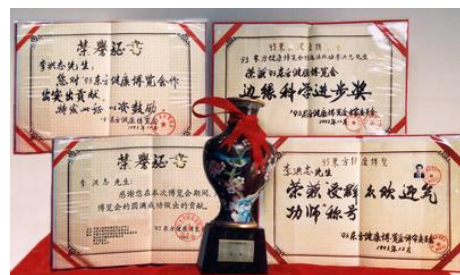 荣誉证书
李洪志先生：
您对'93东方健康博览会作
出突出贡献，
特发此证，以资鼓励。
'93东方健康博览会
1993年12月
'93东方健康博览会
荣获'93东方健康博览会
边缘科学进步奖
'93东方健康博览会评审委员会
1993年12月
荣誉证书
李洪志先生：
感谢您在本次博览会期间，
博览会的圆满成功做出的贡献。
'93东方健康博览会
'93东方健康博览
李洪志先生：
荣获受群众欢迎气
功师称号
'93东方健康博览会评审委员会
1993年12月